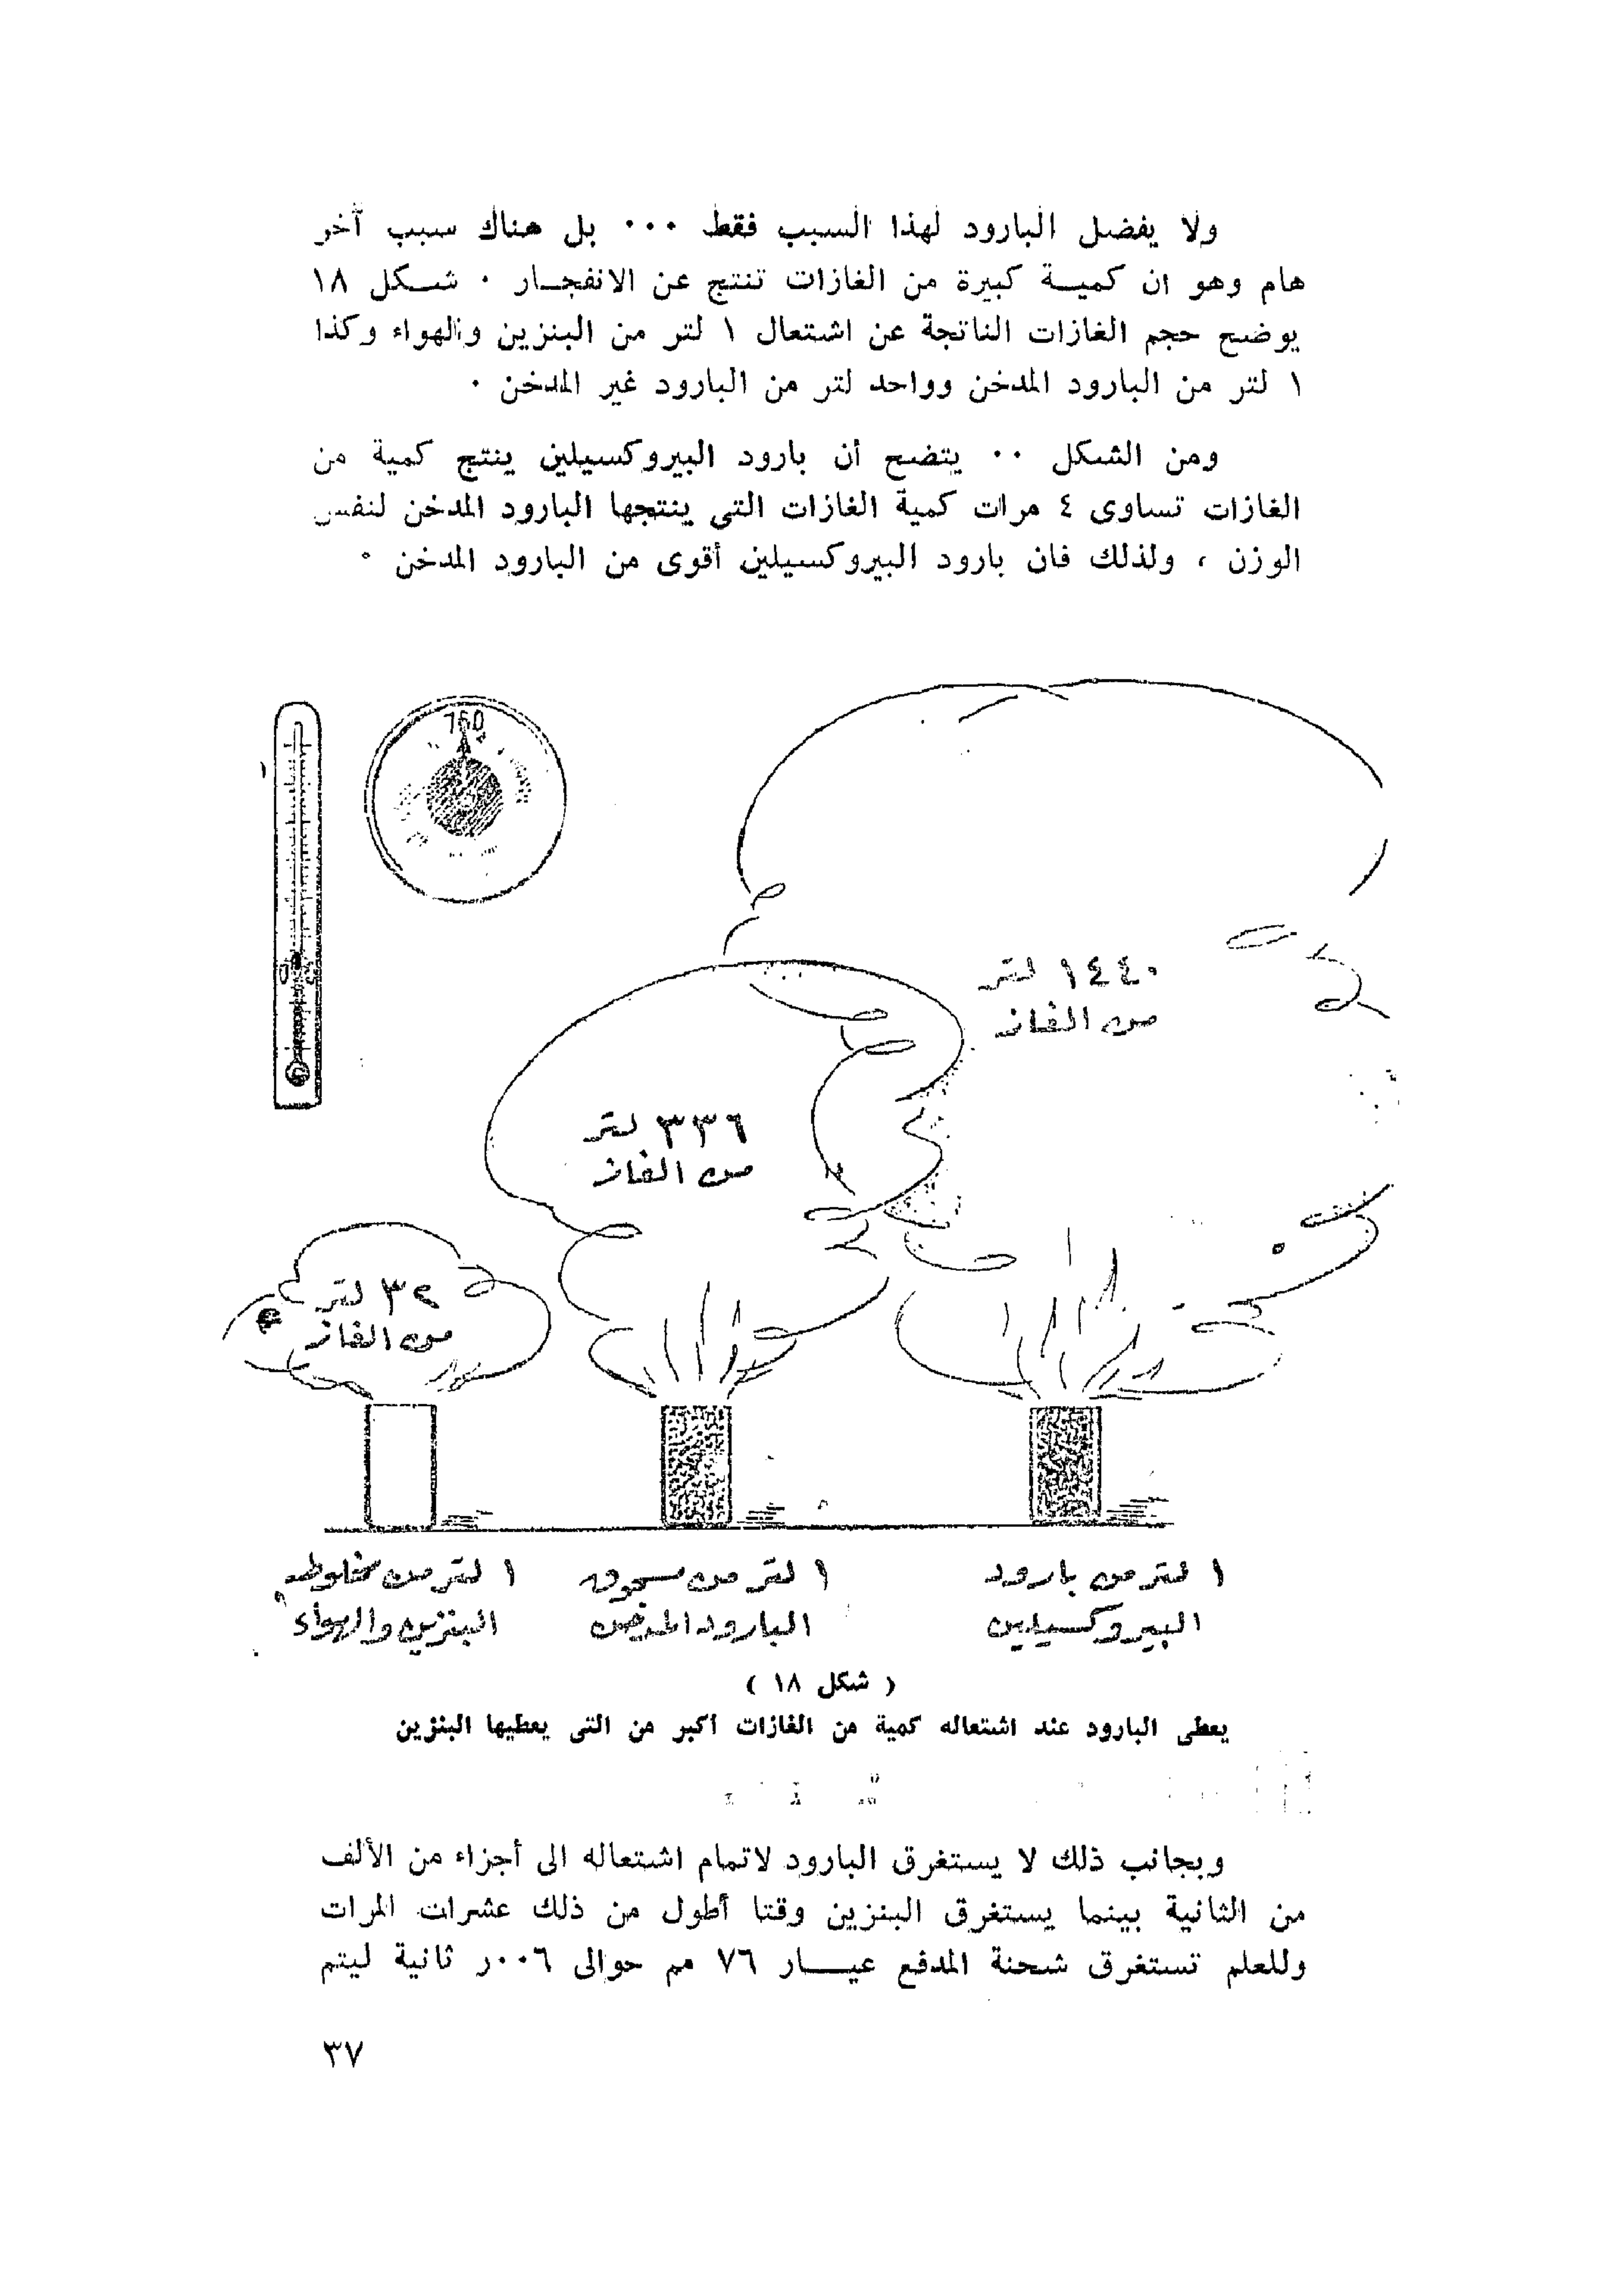 ولا يفضل البارود لهذا السبب فقط ٠٠٠ بل هناك سبب آخر
هام وهو ان كميــة كبيرة من الغازات تنتج عن الانفجــار ٠ شــكل ١٨
يوضح حجم الغازات الناتجة عن اشتعال ١ لتر من البنزين والهواء وكذا
١ لتر من البارود المدخن وواحد لتر من البارود غير المدخن ٠
ومن الشكل ٠٠ يتضح أن بارود البيروكسيلين ينتج كمية من
الغازات تساوى ٤ مرات كمية الغازات التى ينتجها البارود المدخن لنفس
الوزن ، ولذلك فان بارود البيروكسيلين أقوى من البارود المدخن ٠
760
١٤٤٠ لتر
من الغاز
٣٣٦ لتر
من الغاز
٣٢ لتر
من الغاز
١ لتر من بارود
البيروكسيلين
١ لتر من مسحوق
البارود المدخن
١ لتر من مخلوط
البنزين والهواء
( شكل ١٨ )
يعطى البارود عند اشتعاله كمية من الغازات أكبر من التى يعطيها البنزين
وبجانب ذلك لا يستغرق البارود لاتمام اشتعاله الى أجزاء من الألف
من الثانية بينما يستغرق البنزين وقتا أطول من ذلك عشرات المرات
وللعلم تستغرق شحنة المدفع عيـــار ٧٦ مم حوالى ٠٠٦ر ثانية ليتم
٣٧